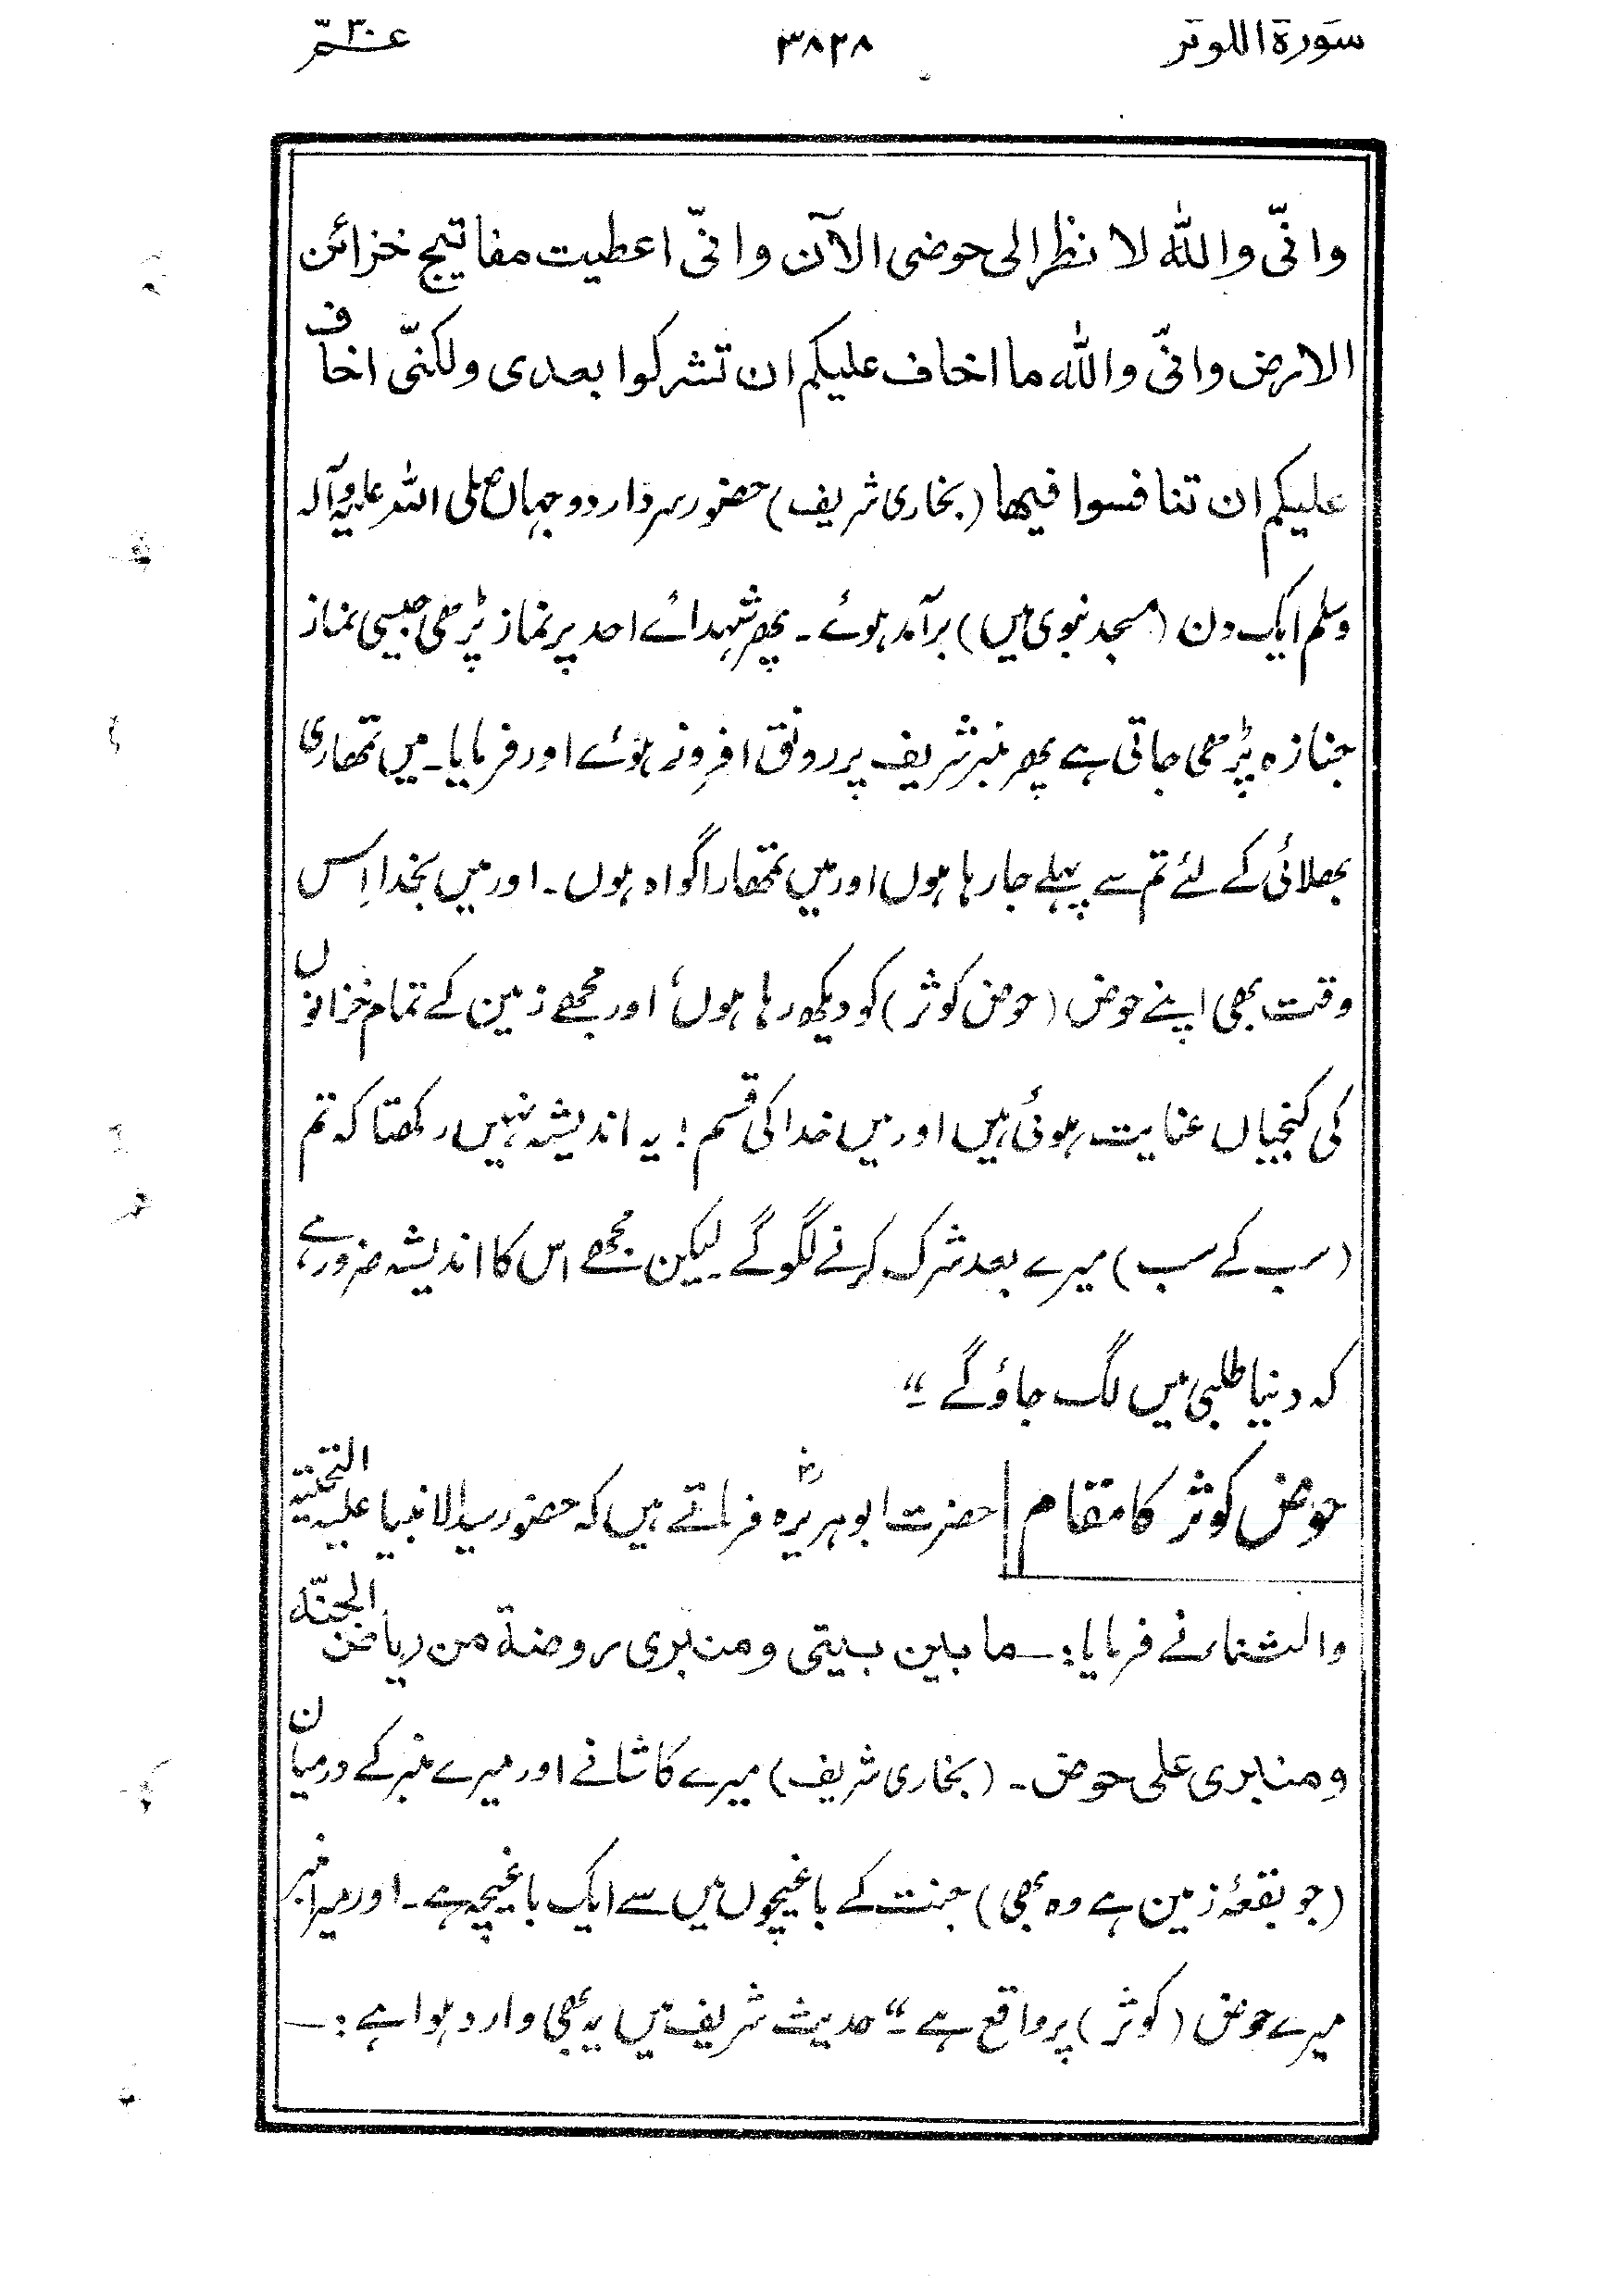 سورة الکوثر ۳۸۲۸ عمّ ۳۰
وانّی واللّٰہ لانظر الی حوضی الآن وانّی اعطیت مفاتیح خزائن
الارض وانّی واللّٰہ ما اخاف علیکم ان تشرکوا بعدی ولکنّی اخاف
علیکم ان تنافسوا فیھا (بخاری شریف) حضور سردار دوجہاں صلی اللہ علیہ وآلہ
وسلم ایک دن (مسجد نبوی میں) برآمد ہوئے۔ پھر شہدائے احد پر نماز پڑھی جیسی نماز
جنازہ پڑھی جاتی ہے پھر منبر شریف پر رونق افروز ہوئے اور فرمایا۔ میں تمھاری
بھلائی کے لئے تم سے پہلے جا رہا ہوں اور میں تمھارا گواہ ہوں۔ اور میں بخدا اِس
وقت بھی اپنے حوض (حوض کوثر) کو دیکھ رہا ہوں، اور مجھے زمین کے تمام خزانوں
کی کنجیاں عنایت ہوئی ہیں اور میں خدا کی قسم! یہ اندیشہ نہیں رکھتا کہ تم
(سب کے سب) میرے بعد شرک کرنے لگو گے۔ لیکن مجھے اس کا اندیشہ ضرور ہے
کہ دنیا طلبی میں لگ جاؤ گے۔“
حوض کوثر کا مقام حضرت ابوہریرہؓ فرماتے ہیں کہ حضور سید الانبیا علیہ التحتیہ
والثناء نے فرمایا:۔ ما بین بیتی ومنبری روضة من ریاض الجنّة
ومنبری علی حوض۔ (بخاری شریف) میرے کاشانے اور میرے منبر کے درمیان
(جو بقعۂ زمین ہے وہ بھی) جنت کے باغیچوں میں سے ایک باغیچہ ہے۔ اور میرا منبر
میرے حوض (کوثر) پر واقع ہے۔“ حدیث شریف میں یہ بھی وارد ہوا ہے:۔